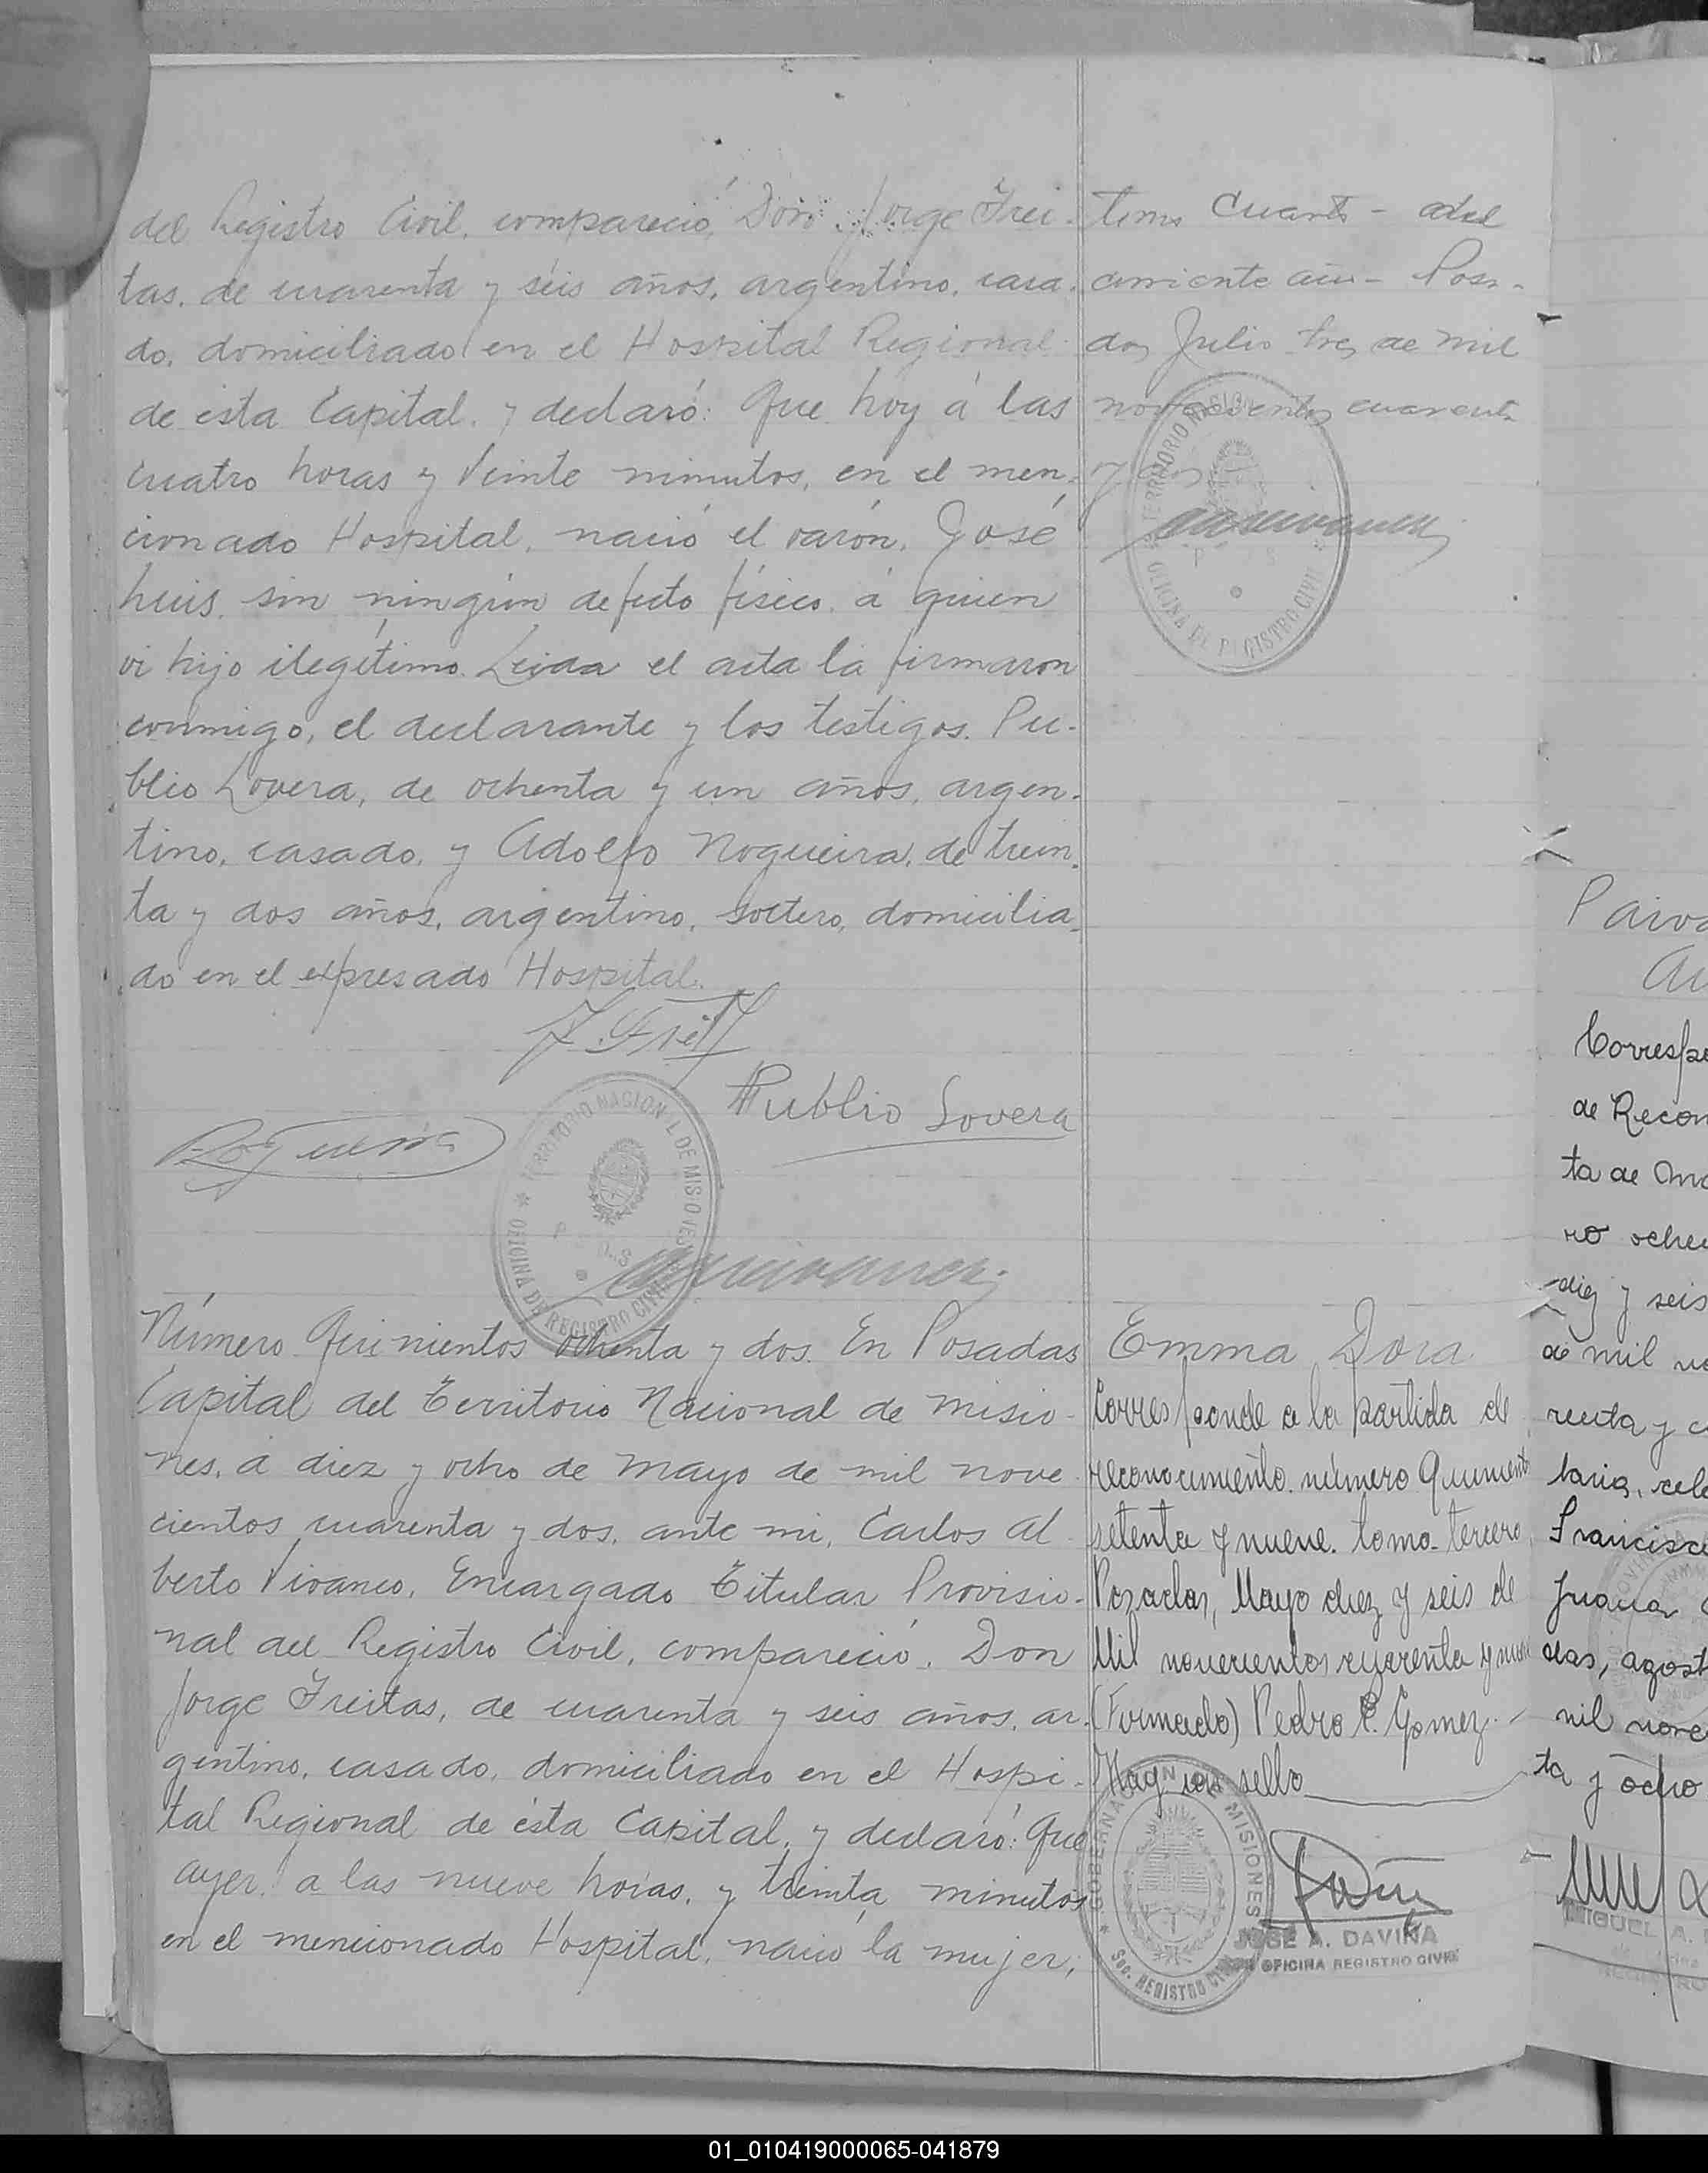 del Registro Civil, compareció, Don Jorge Frei-
tas, de cuarenta y seis años, argentino, casa-
do, domiciliado en el Hospital Regional
de esta Capital, y declaró: Que hoy á las
cuatro horas y veinte minutos, en el men-
cionado Hospital, nació el varón, José
Luis, sin ningún defecto físico, á quien
vi hijo ilegítimo. Leida el acta la firmaron
conmigo, el declarante y los testigos. Pu-
blio Lovera, de ochenta y un años, argen-
tino, casado, y Adolfo Nogueira, de trein-
ta y dos años, argentino, soltero, domicilia-
do en el expresado Hospital.
J. Freit
Publio Lovera
TERRITORIO NACIONAL DE MISIONES
OFICINA DE REGISTRO CIVIL
tomo Cuarto - del
corriente año - Posa-
das Julio tres de mil
novecientos cuarenta
TERRITORIO NACION
OFICINA DE REGISTRO CIVIL
Número Quinientos ochenta y dos. En Posadas
Capital del Territorio Nacional de Misio-
nes, á diez y ocho de Mayo de mil nove-
cientos cuarenta y dos, ante mi, Carlos Al-
berto Vivanco, Encargado Titular Provisio-
nal del Registro Civil, compareció, Don
Jorge Freitas, de cuarenta y seis años, ar-
gentino, casado, domiciliado en el Hospi-
tal Regional de ésta Capital, y declaró: Que
ayer, a las nueve horas, y treinta minutos
en el mencionado Hospital, nació la mujer,
Emma Dora
Corresponde a la partida de
reconocimiento. número Quinientos
setenta y nueve. tomo tercero
Posadas, Mayo diez y seis de
Mil novecientos cuarenta y nueve
(Firmado) Pedro C. Gomez.
Hay un sello
GOBERNACION DE MISIONES
Soc. REGISTRO CIVIL
JOSÉ A. DAVIÑA
OFICINA REGISTRO CIVIL
Paiva
Corresp
de Recon
ta de
ro oche
diez y seis
de mil no
renta y
Francisco
Juana
das, agost
mil nove
ta y ocho
MIGUEL A.
01_010419000065-041879